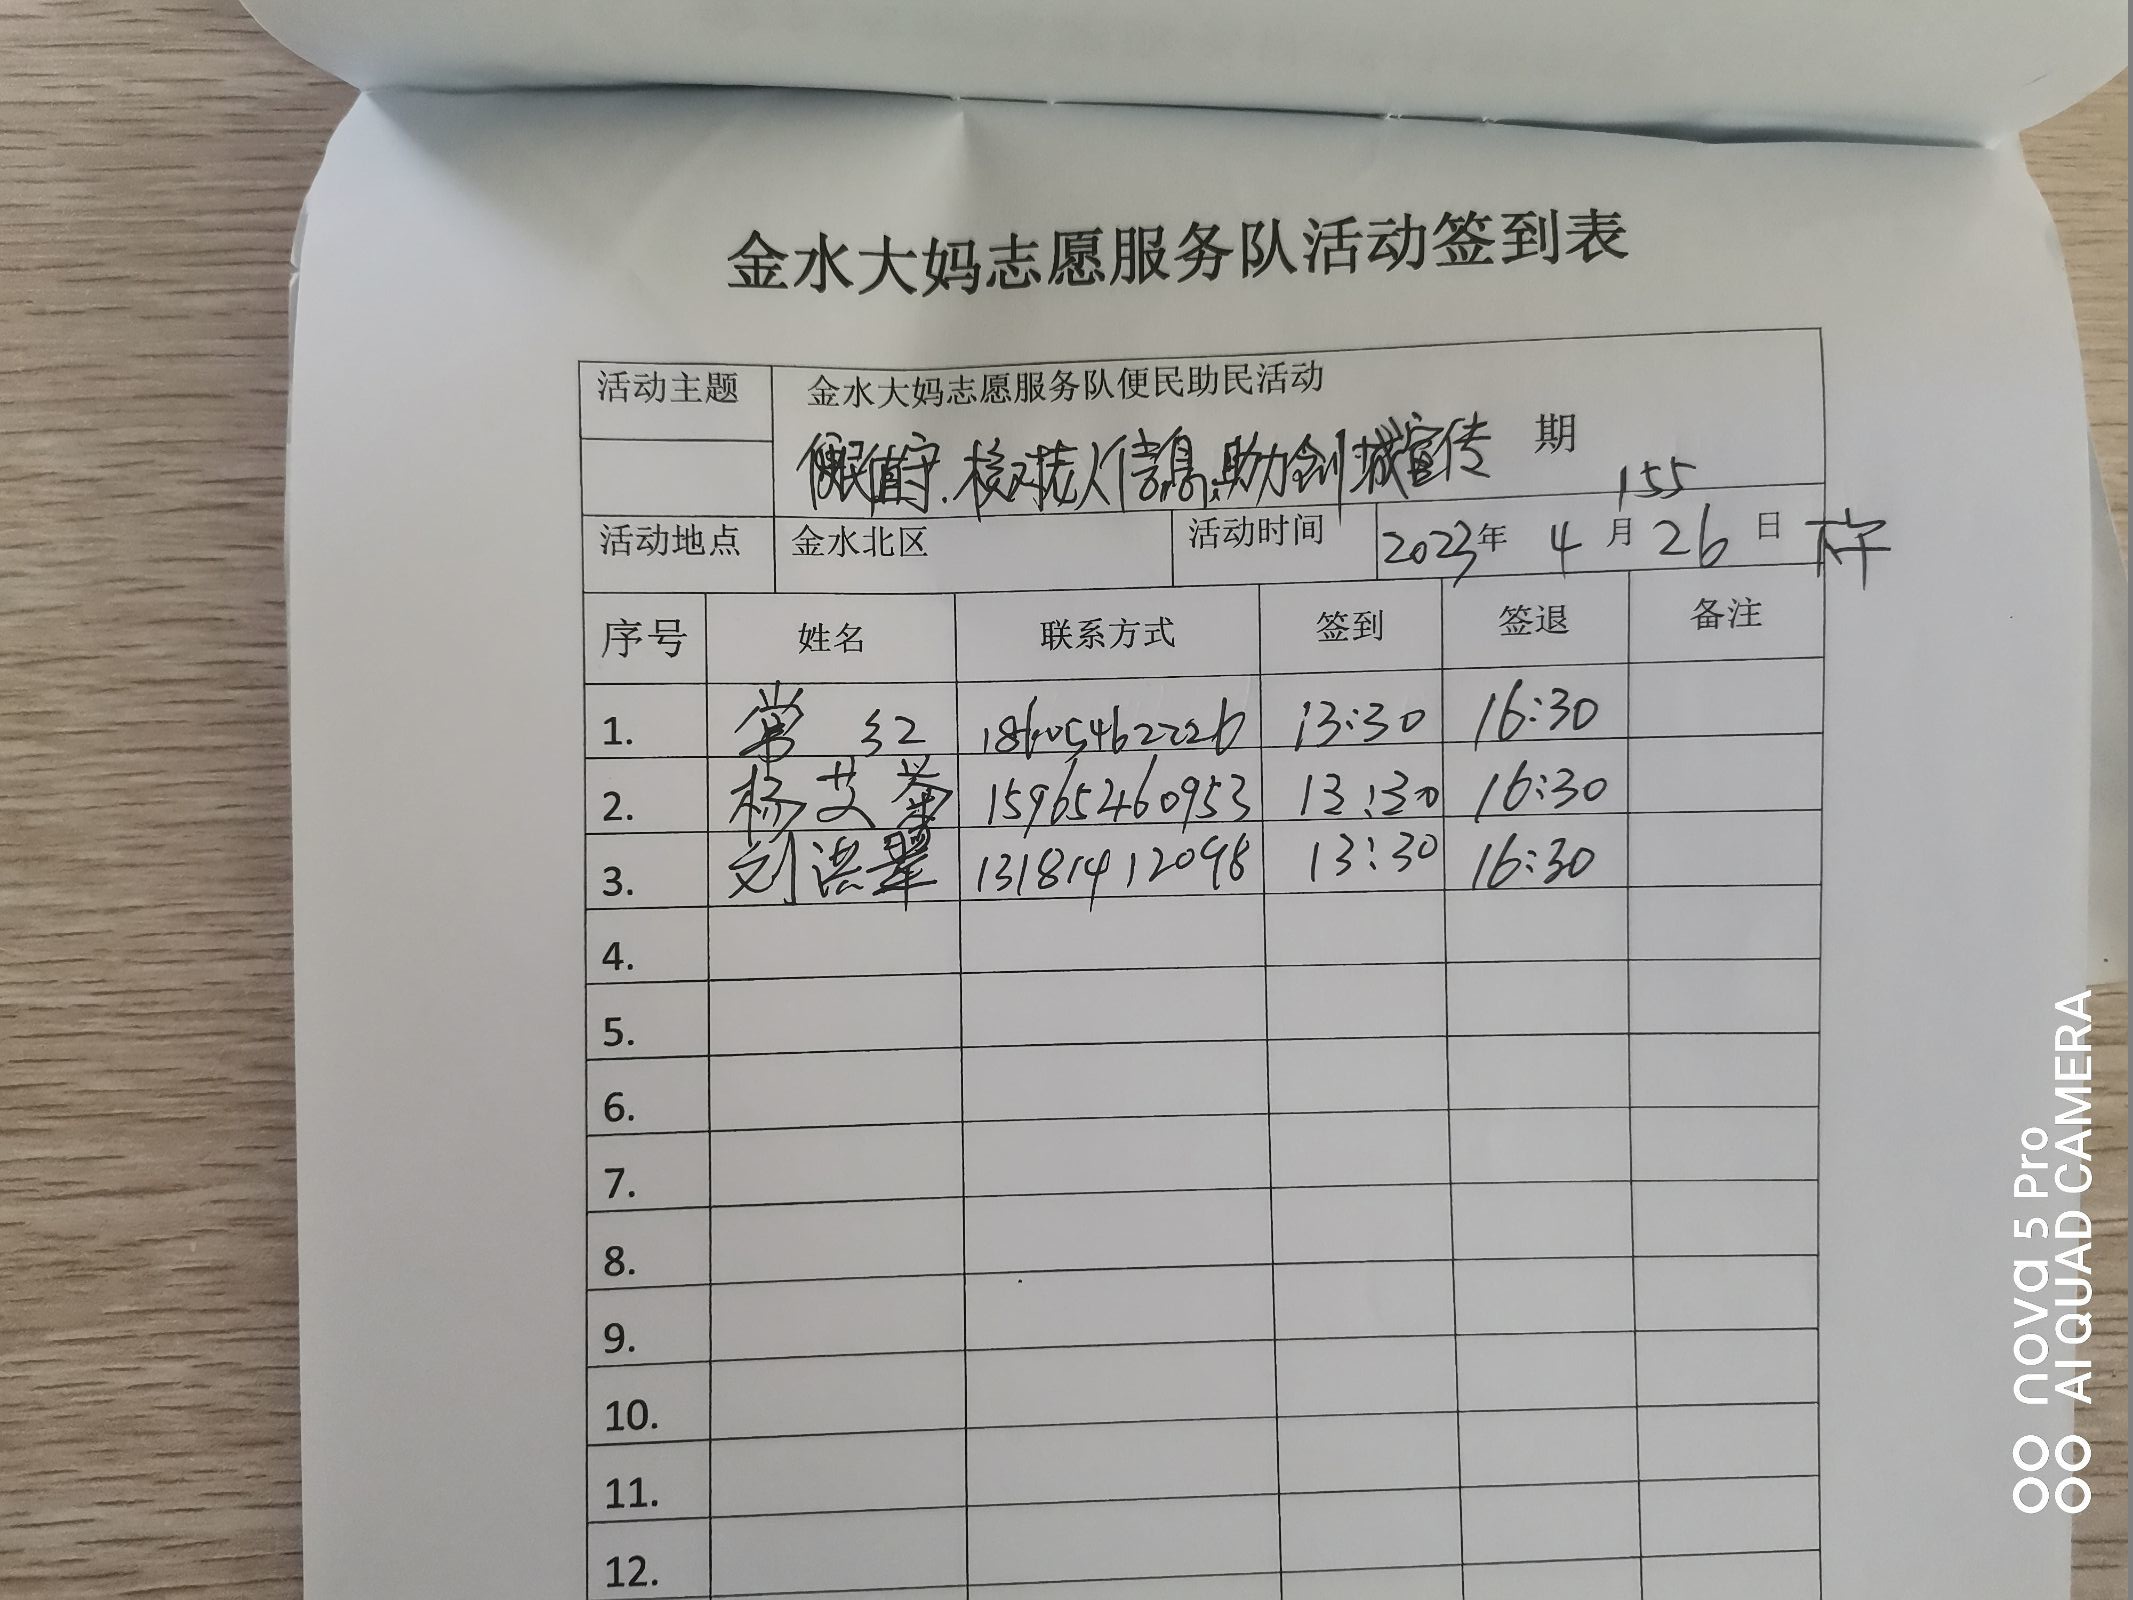 金水大妈志愿服务队活动签到表
活动主题 金水大妈志愿服务队便民助民活动
便民值守.核对老人信息,助力创城宣传 期
155
活动地点 金水北区 活动时间 2023年 4 月 26 日 下午
序号 姓名 联系方式 签到 签退 备注
1. 常 红 18605462226 13:30 16:30
2. 杨艾菊 15965460953 13:30 16:30
3. 刘洪翠 13181412098 13:30 16:30
4.
5.
6.
7.
8.
9.
10.
11.
12.
nova 5 Pro
AI QUAD CAMERA